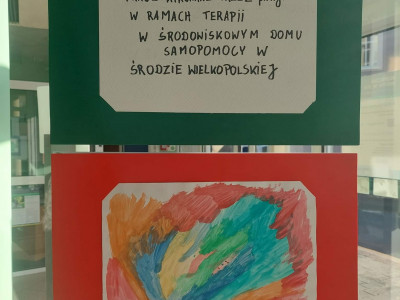 W RAMACH TERAPII
W ŚRODOWISKOWYM DOMU
SAMOPOMOCY W
ŚRODZIE WIELKOPOLSKIEJ